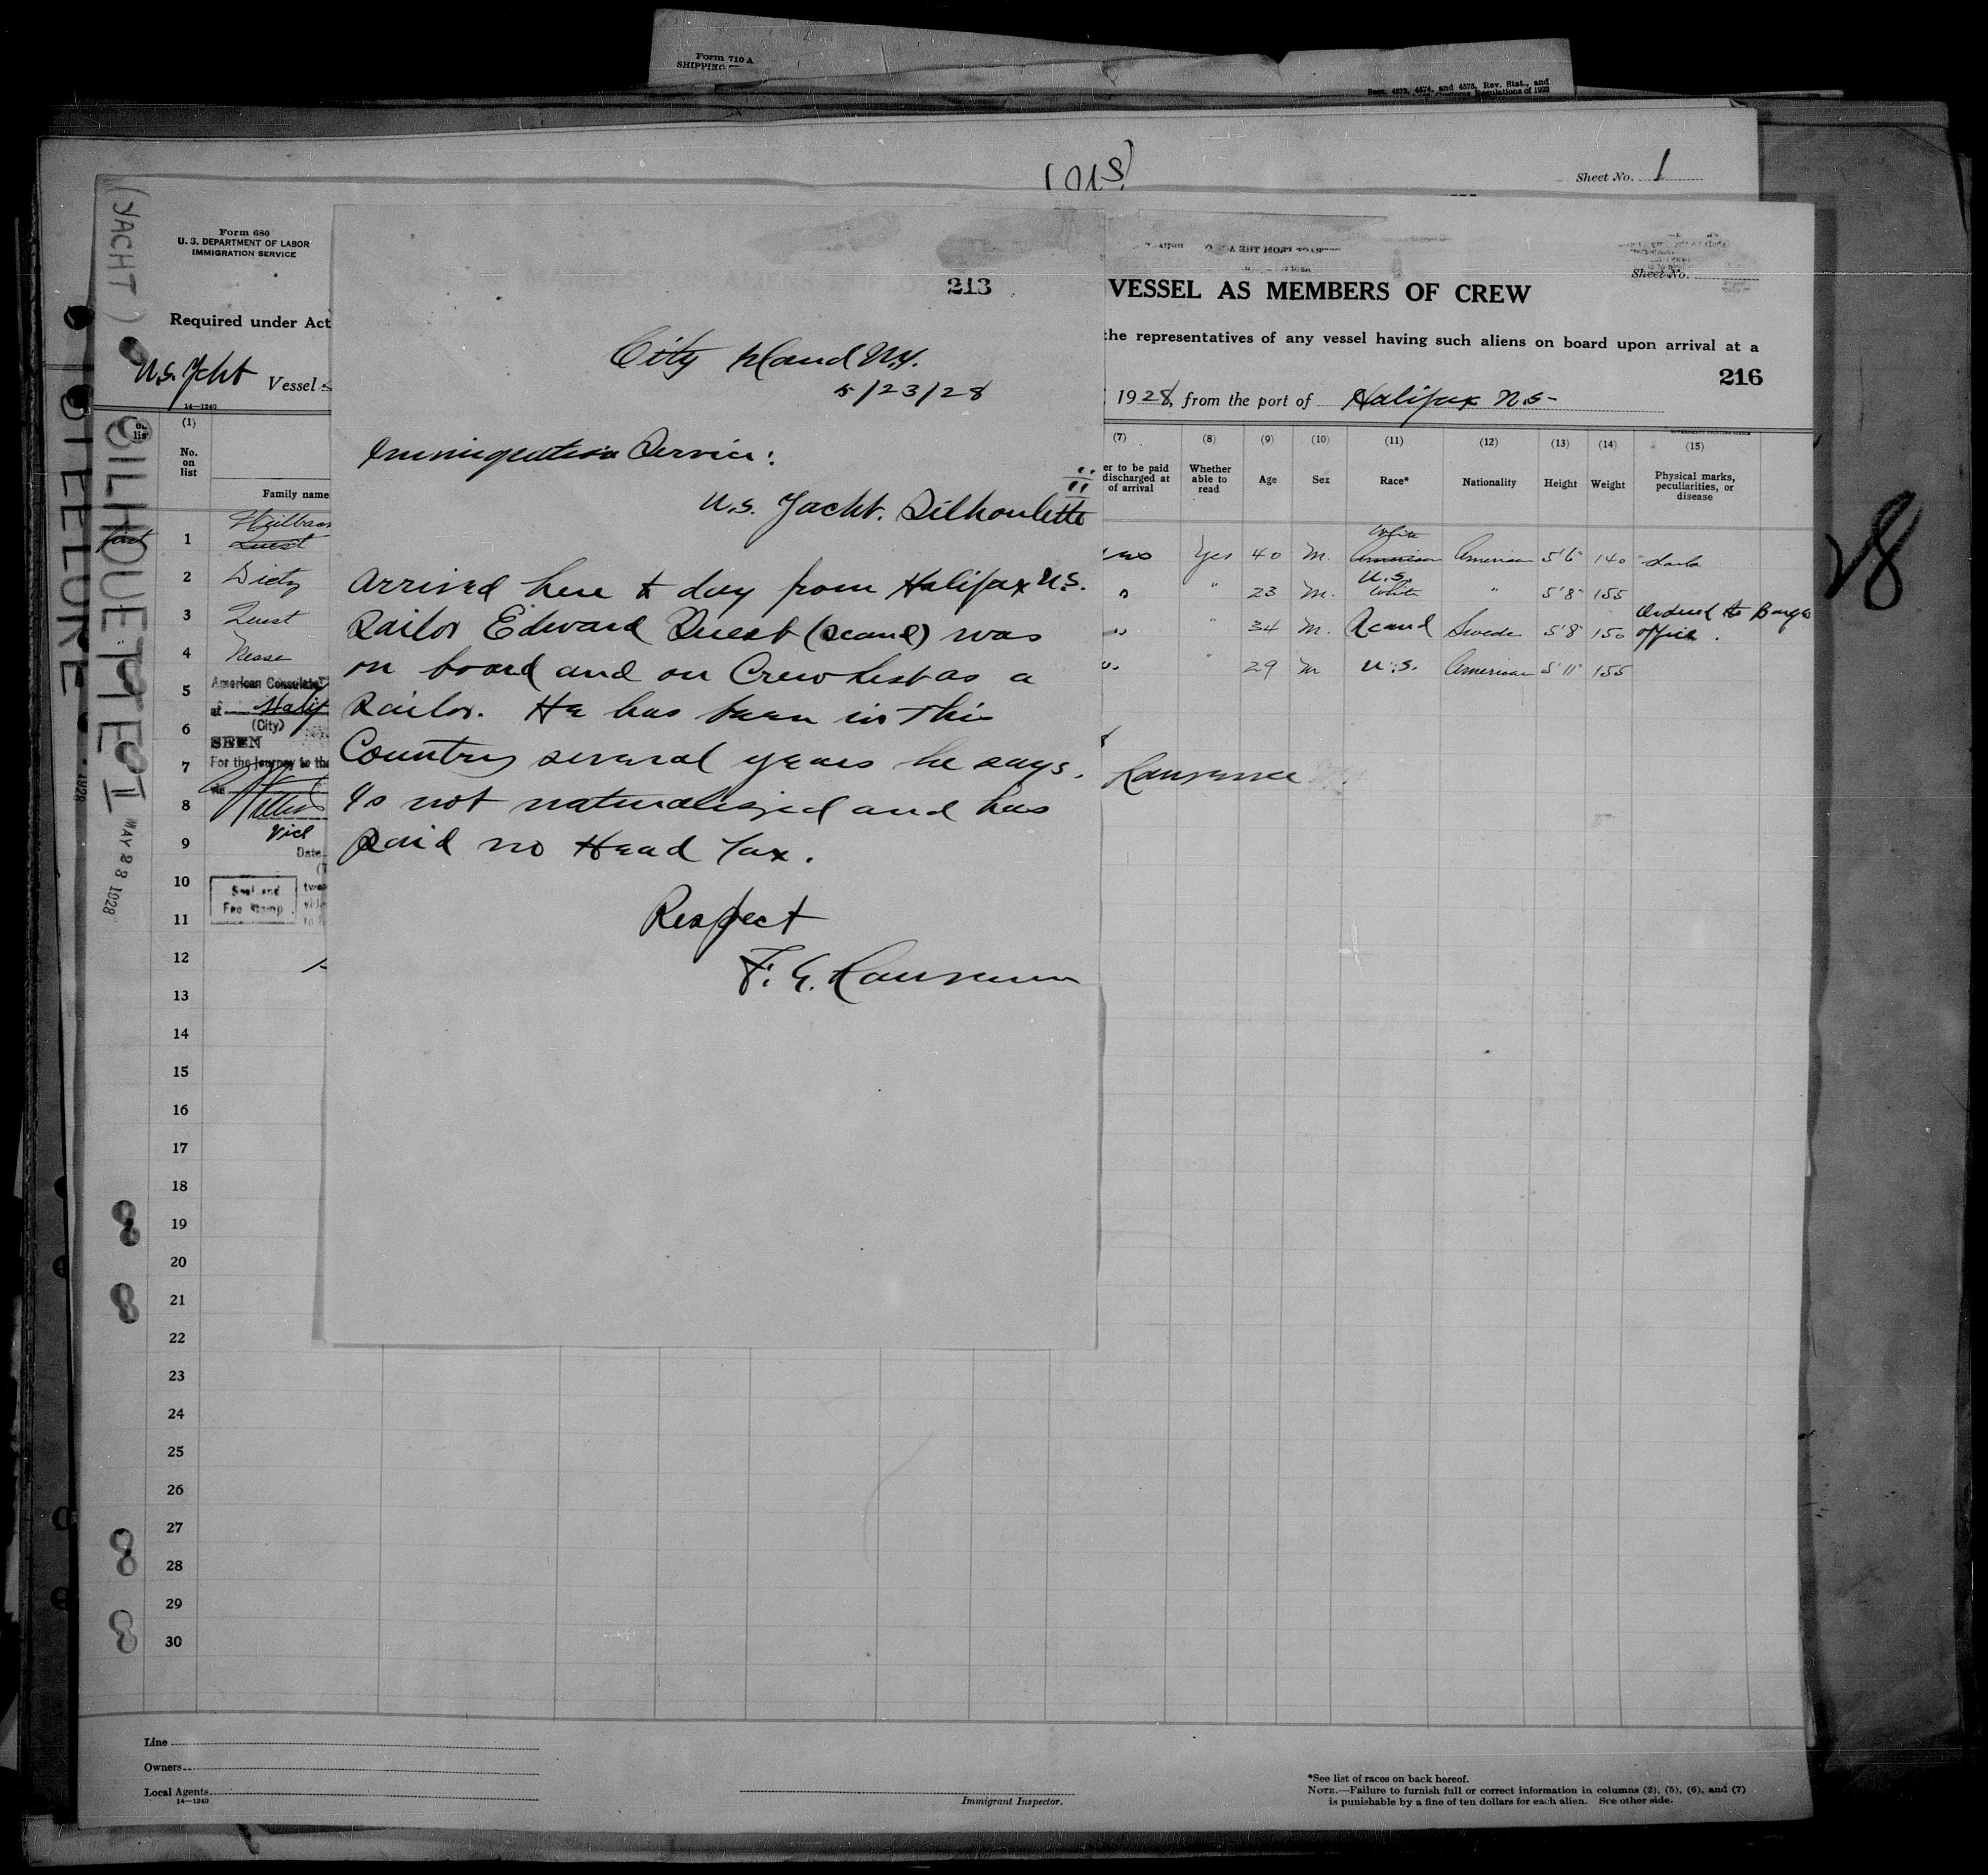 Form 710 A
SHIPPING
Secs. 4573, 4574, and 4575, Rev. Stat., and
Customs Regulations of 1923
Sheet No. 1
Form 680
U. S. DEPARTMENT OF LABOR
IMMIGRATION SERVICE
Required under Act
U.S. Ycht Vessel
14—1240
(YACHT)
SILHOUETTE II
MAY 23 1928
STEELURE
1928
(1)
No.
on
list
Family name
1 Quest
2 Dietz
3 Quest
4 Nesse
5
6
7
8
9
10
11
12
13
14
15
16
17
18
19
20
21
22
23
24
25
26
27
28
29
30
American Consulate
at Halif
(City)
SEEN
For the journey to the
Vice
Date
Seal and
Fee Stamp
213
City Island N.Y.
5/23/28
Immigration Service:
U.S. Yacht. Silhoulette II
Arrived here to day from Halifax N.S.
Sailor Edward Quest (Scand) was
on board and on Crew List as a
Sailor. He has been in this
Country several years he says.
Is not naturalized and has
paid no Head Tax.
Respect
VESSEL AS MEMBERS OF CREW
Sheet No.
the representatives of any vessel having such aliens on board upon arrival at a
216
1928, from the port of Halifax N.S-
(7) (8) (9) (10) (11) (12) (13) (14) (15)
er to be paid
discharged at
of arrival
Whether
able to
read
Age Sex Race* Nationality Height Weight
Physical marks,
peculiarities, or
disease
White
Yes 40 M. American American 5'6" 140
U.S.
" 23 M. White " 5'8" 155
" 34 M. Scand Swede 5'8" 150 Ordered to Barge
office.
" 29 M U.S. American 5'11" 155
28
Line
Owners
Local Agents
14—1240
Immigrant Inspector.
*See list of races on back hereof.
NOTE.—Failure to furnish full or correct information in columns (2), (5), (6), and (7)
is punishable by a fine of ten dollars for each alien. See other side.